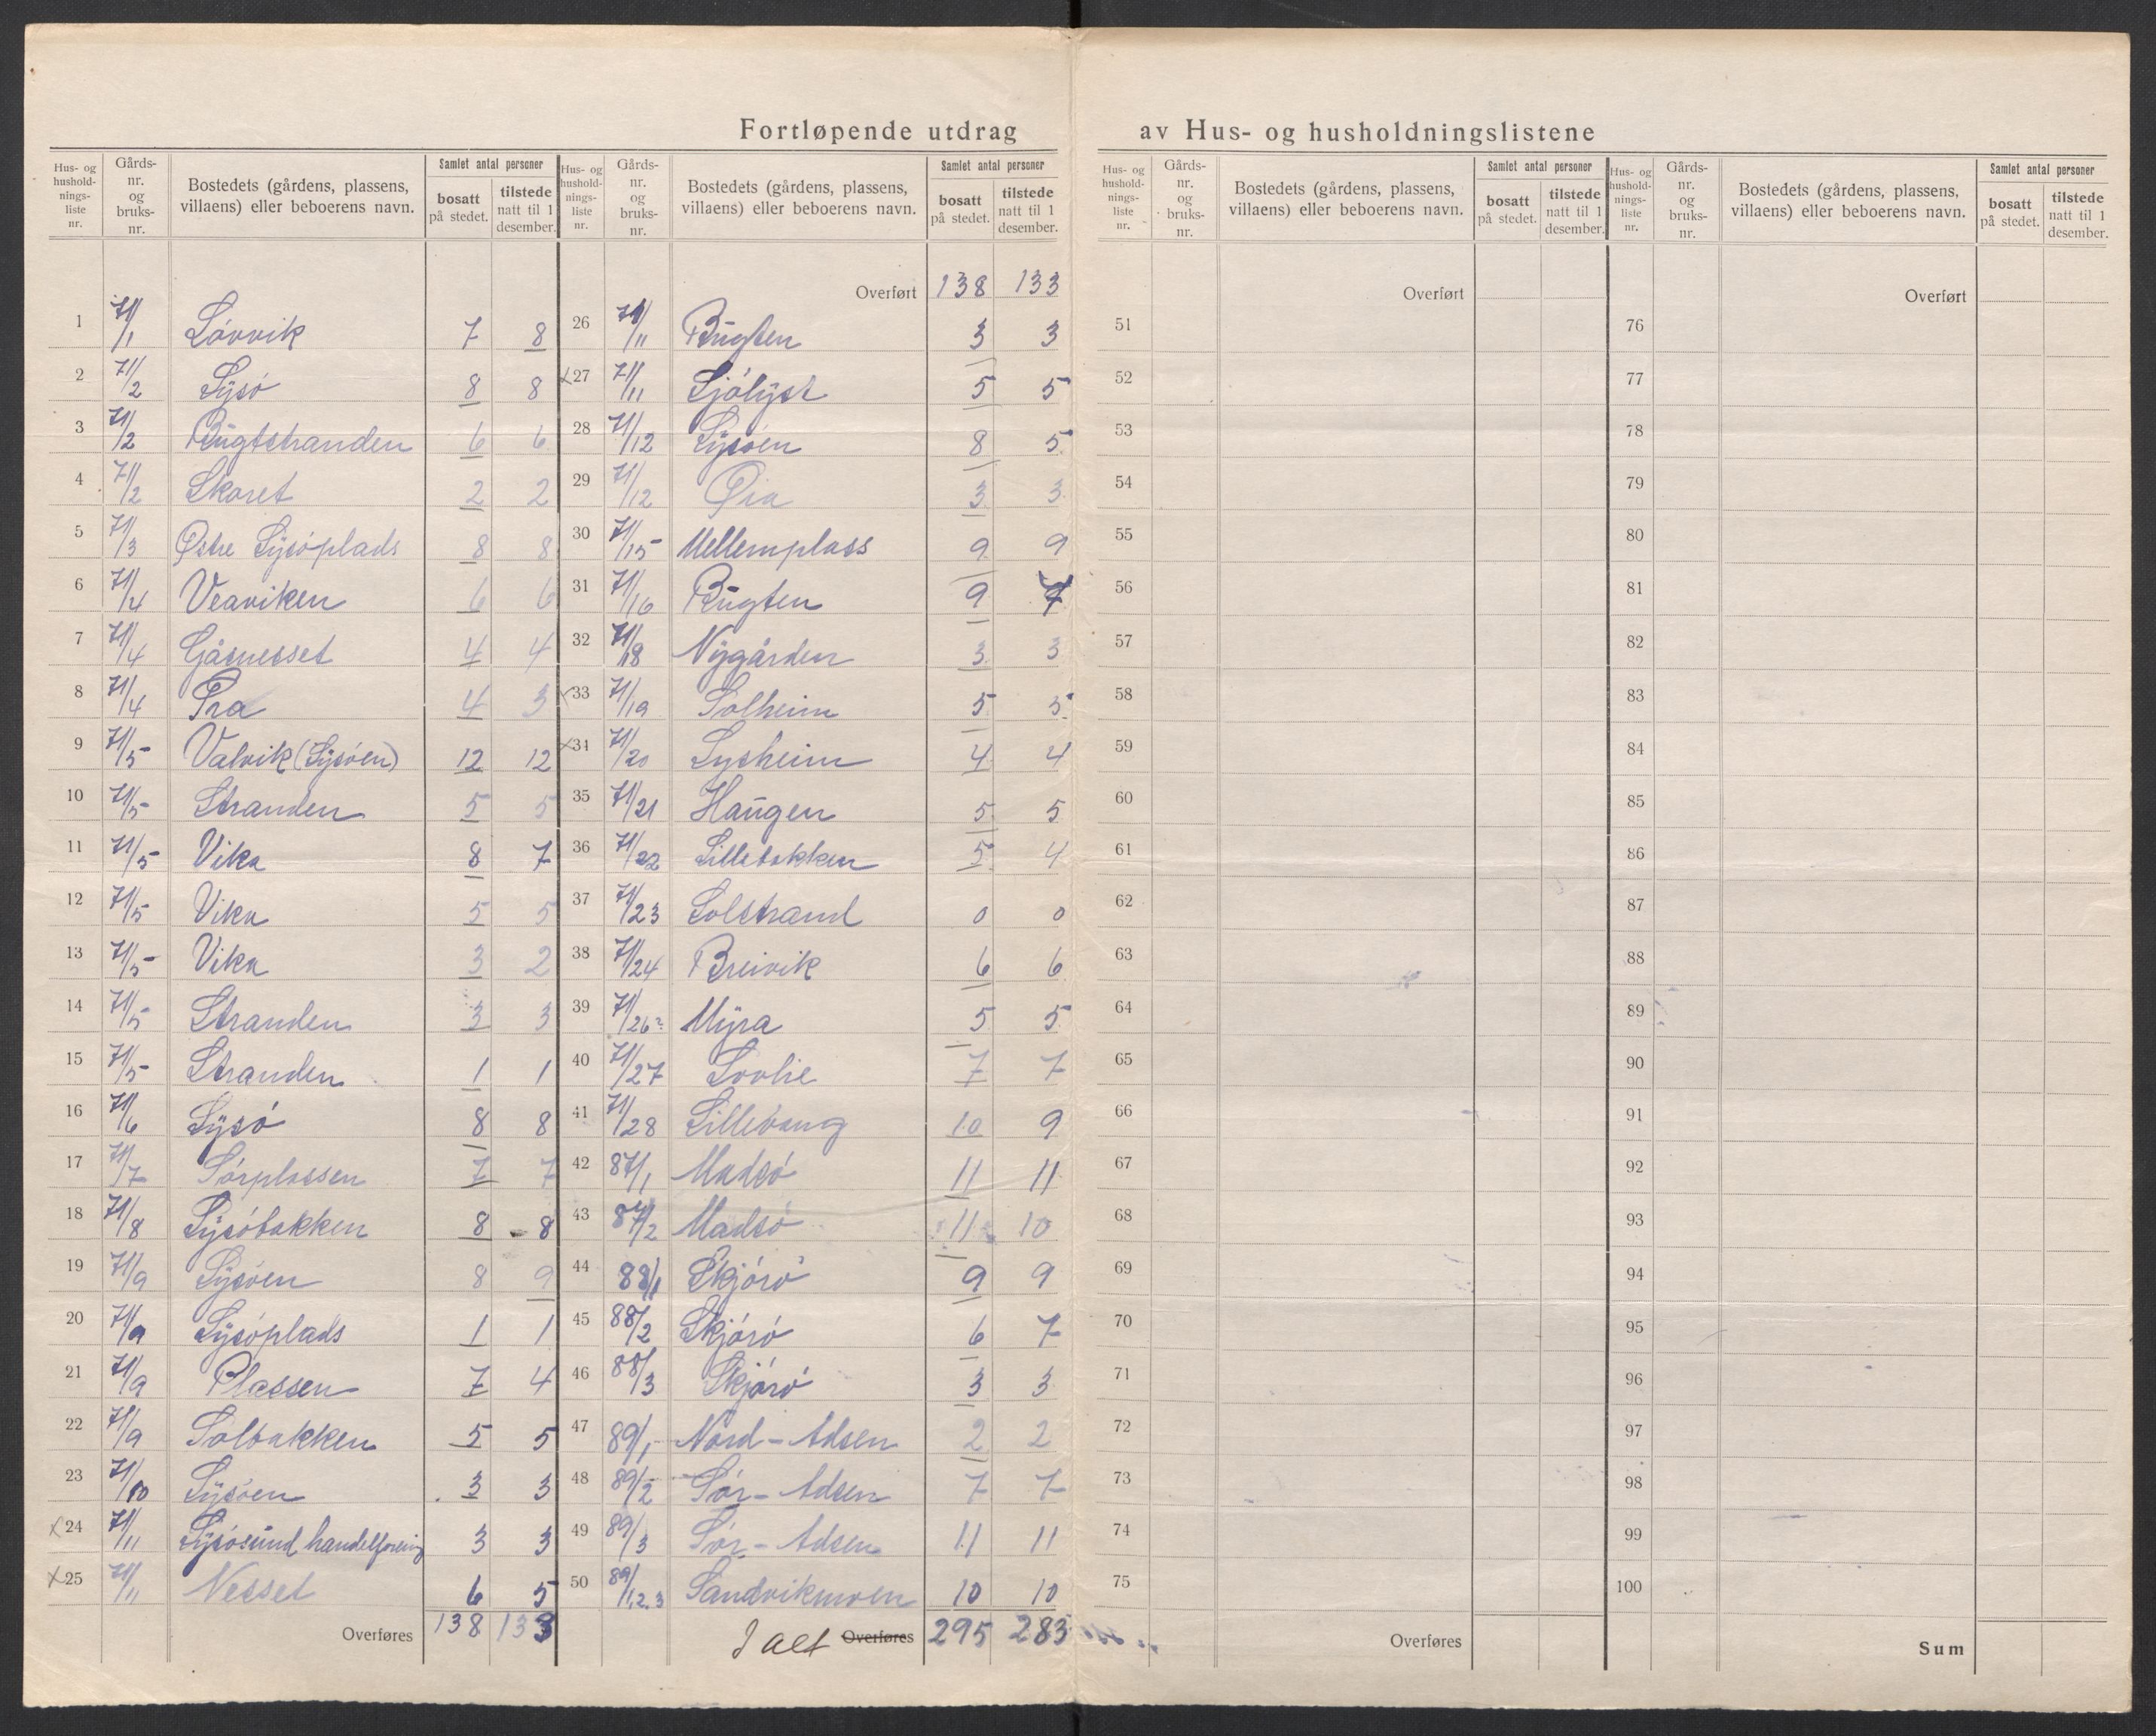 Fortløpende utdrag av Hus- og husholdningslistene
Hus- og hushold- nings- liste nr. | Gårds- nr. og bruks- nr. | Bostedets (gårdens, plassens, villaens) eller beboerens navn. | Samlet antal personer | bosatt på stedet. | tilstede natt til 1 desember.
1 71/1 Lövvik 7 8
2 71/2 Lysö 8 8
3 71/2 Bugtstranden 6 6
4 71/2 Skaret 2 2
5 71/3 Østre Lysöplads 8 8
6 71/4 Veaviken 6 6
7 71/4 Gåsnesset 4 4
8 71/4 Pra 4 3
9 71/5 Valvik (Lysöen) 12 12
10 71/5 Stranden 5 5
11 71/5 Vika 8 7
12 71/5 Vika 5 5
13 71/5 Vika 3 2
14 71/5 Stranden 3 3
15 71/5 Stranden 1 1
16 71/6 Lysö 8 8
17 71/7 Sörplassen 7 7
18 71/8 Lysöbakken 8 8
19 71/9 Lysöen 8 9
20 71/9 Lysöplads 1 1
21 71/9 Plassen 7 4
22 71/9 Solbakken 5 5
23 71/10 Lysöen 3 3
x24 71/11 Lysösund handelforening 3 3
x25 71/11 Nesset 6 5
Overføres 138 133
Hus- og hushold- nings- liste nr. | Gårds- nr. og bruks- nr. | Bostedets (gårdens, plassens, villaens) eller beboerens navn. | Samlet antal personer | bosatt på stedet. | tilstede natt til 1 desember.
Overført 138 133
26 71/11 Bugten 3 3
x27 71/11 Sjölyst 5 5
28 71/12 Lysöen 8 5
29 71/12 Øra 3 3
30 71/15 Mellemplass 9 9
31 71/16 Bugten 9 7
32 71/18 Nygården 3 3
x33 71/19 Solheim 5 5
x34 71/20 Lysheim 4 4
35 71/21 Haugen 5 5
36 71/22 Lillebakken 5 4
37 71/23 Solstrand 0 0
38 71/24 Breivik 6 6
39 71/26 Myra 5 5
40 71/27 Lovlie 7 7
41 71/28 Lillevang 10 9
42 87/1 Madsö 11 11
43 87/2 Madsö 11 10
44 88/1 Skjörö 9 9
45 88/2 Skjörö 6 7
46 88/3 Skjörö 3 3
47 89/1 Nord-Adsen 2 2
48 89/2 Sör-Adsen 7 7
49 89/3 Sör-Adsen 11 11
50 89/1,2,3 Sandvikmoen 10 10
I alt Overføres 295 283
Hus- og hushold- nings- liste nr. | Gårds- nr. og bruks- nr. | Bostedets (gårdens, plassens, villaens) eller beboerens navn. | Samlet antal personer | bosatt på stedet. | tilstede natt til 1 desember.
Overført
51
52
53
54
55
56
57
58
59
60
61
62
63
64
65
66
67
68
69
70
71
72
73
74
75
Overføres
Hus- og hushold- nings- liste nr. | Gårds- nr. og bruks- nr. | Bostedets (gårdens, plassens, villaens) eller beboerens navn. | Samlet antal personer | bosatt på stedet. | tilstede natt til 1 desember.
Overført
76
77
78
79
80
81
82
83
84
85
86
87
88
89
90
91
92
93
94
95
96
97
98
99
100
Sum